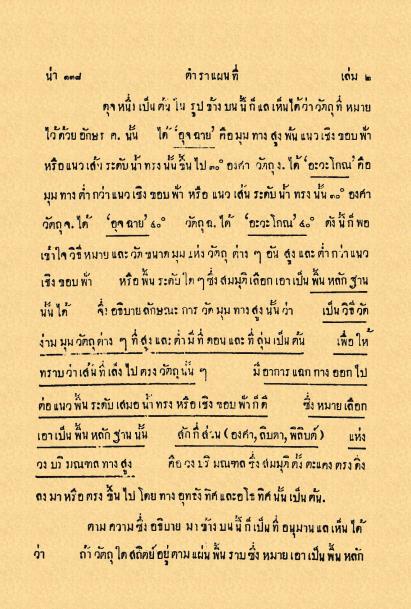 น่า ๑๓๘ ตำราแผนที่ เล่ม ๒
ดุจหนึ่งเป็นต้นในรูปข้างบนนี้ก็แลเห็นได้ว่าวัตถุที่หมาย
ไว้ด้วยอักษร ค. นั้น ได้ 'อุจฉาย' คือมุมทางสูงพ้นแนวเชิงขอบฟ้า
หรือแนวเส้นระดับน้ำทรงนั้นขึ้นไป ๓๐° องศา วัตถุง. ได้ 'อะวะโกณ' คือ
มุมทางต่ำกว่าแนวเชิงขอบฟ้า หรือ แนวเส้นระดับน้ำทรงนั้น ๓๐° องศา
วัตถุจ. ได้ 'อุจฉาย' ๔๐° วัตถุฉ. ได้ 'อะวะโกณ' ๔๐° ดังนี้ก็พอ
เข้าใจวิธีหมายและวัดขนาดมุมแห่งวัตถุต่าง ๆ อันสูงและต่ำกว่าแนว
เชิงขอบฟ้า หรือพื้นระดับใด ๆ ซึ่งสมมุติเลือกเอาเป็นพื้นหลักฐาน
นั้นได้ จึ่งอธิบายลักษณะการวัดมุมทางสูงนั้นว่า เป็นวิธีวัด
ง่ามมุมวัตถุต่าง ๆ ที่สูงและต่ำมีที่ดอนและที่ลุ่มเป็นต้น เพื่อให้
ทราบว่าเส้นที่เล็งไปตรงวัตถุนั้น ๆ มีอาการแฉกทางออกไป
ต่อแนวพื้นระดับเสมอน้ำทรงหรือเชิงขอบฟ้าก็ดี ซึ่งหมายเลือก
เอาเป็นพื้นหลักฐานนั้น สักกี่ส่วน (องศา, ลิบดา, พิลิบด์) แห่ง
วงบริมณฑลทางสูง คือวงบริมณฑลซึ่งสมมุติตั้งตะแคงตรงดิ่ง
ลงมาหรือตรงขึ้นไปโดยทางอุทธังทิศและอโธทิศนั้นเป็นต้น.
ตามความซึ่งอธิบายมาข้างบนนี้ก็เป็นที่อนุมานแลเห็นได้
ว่า ถ้าวัตถุใดสถิตย์อยู่ตามแผ่นพื้นราบซึ่งหมายเอาเป็นพื้นหลัก